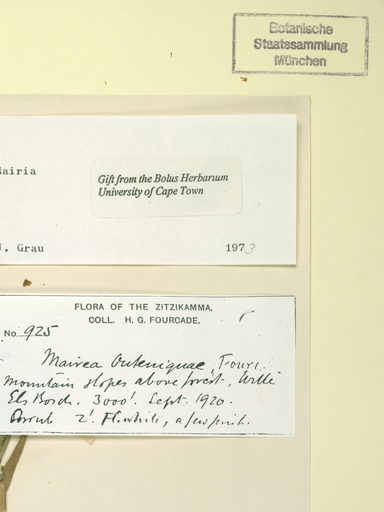 Botanische
Staatssammlung
München
Mairia
Gift from the Bolus Herbarium
University of Cape Town
J. Grau 1973
FLORA OF THE ZITZIKAMMA.
COLL. H. G. FOURCADE.
No. 925
Mairea Outeniquae, Fourc.
Mountain slopes above forest, Witte
Els Bosch. 3000'. Sept. 1920.
2'. Fl. white, a few pink.